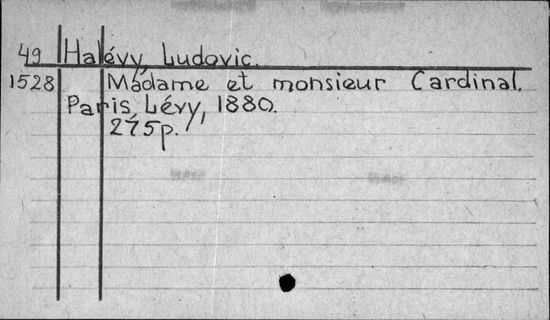 49 Halévy, Ludovic.
1528 Madame et monsieur Cardinal.
Paris, Lévy, 1880.
275p.